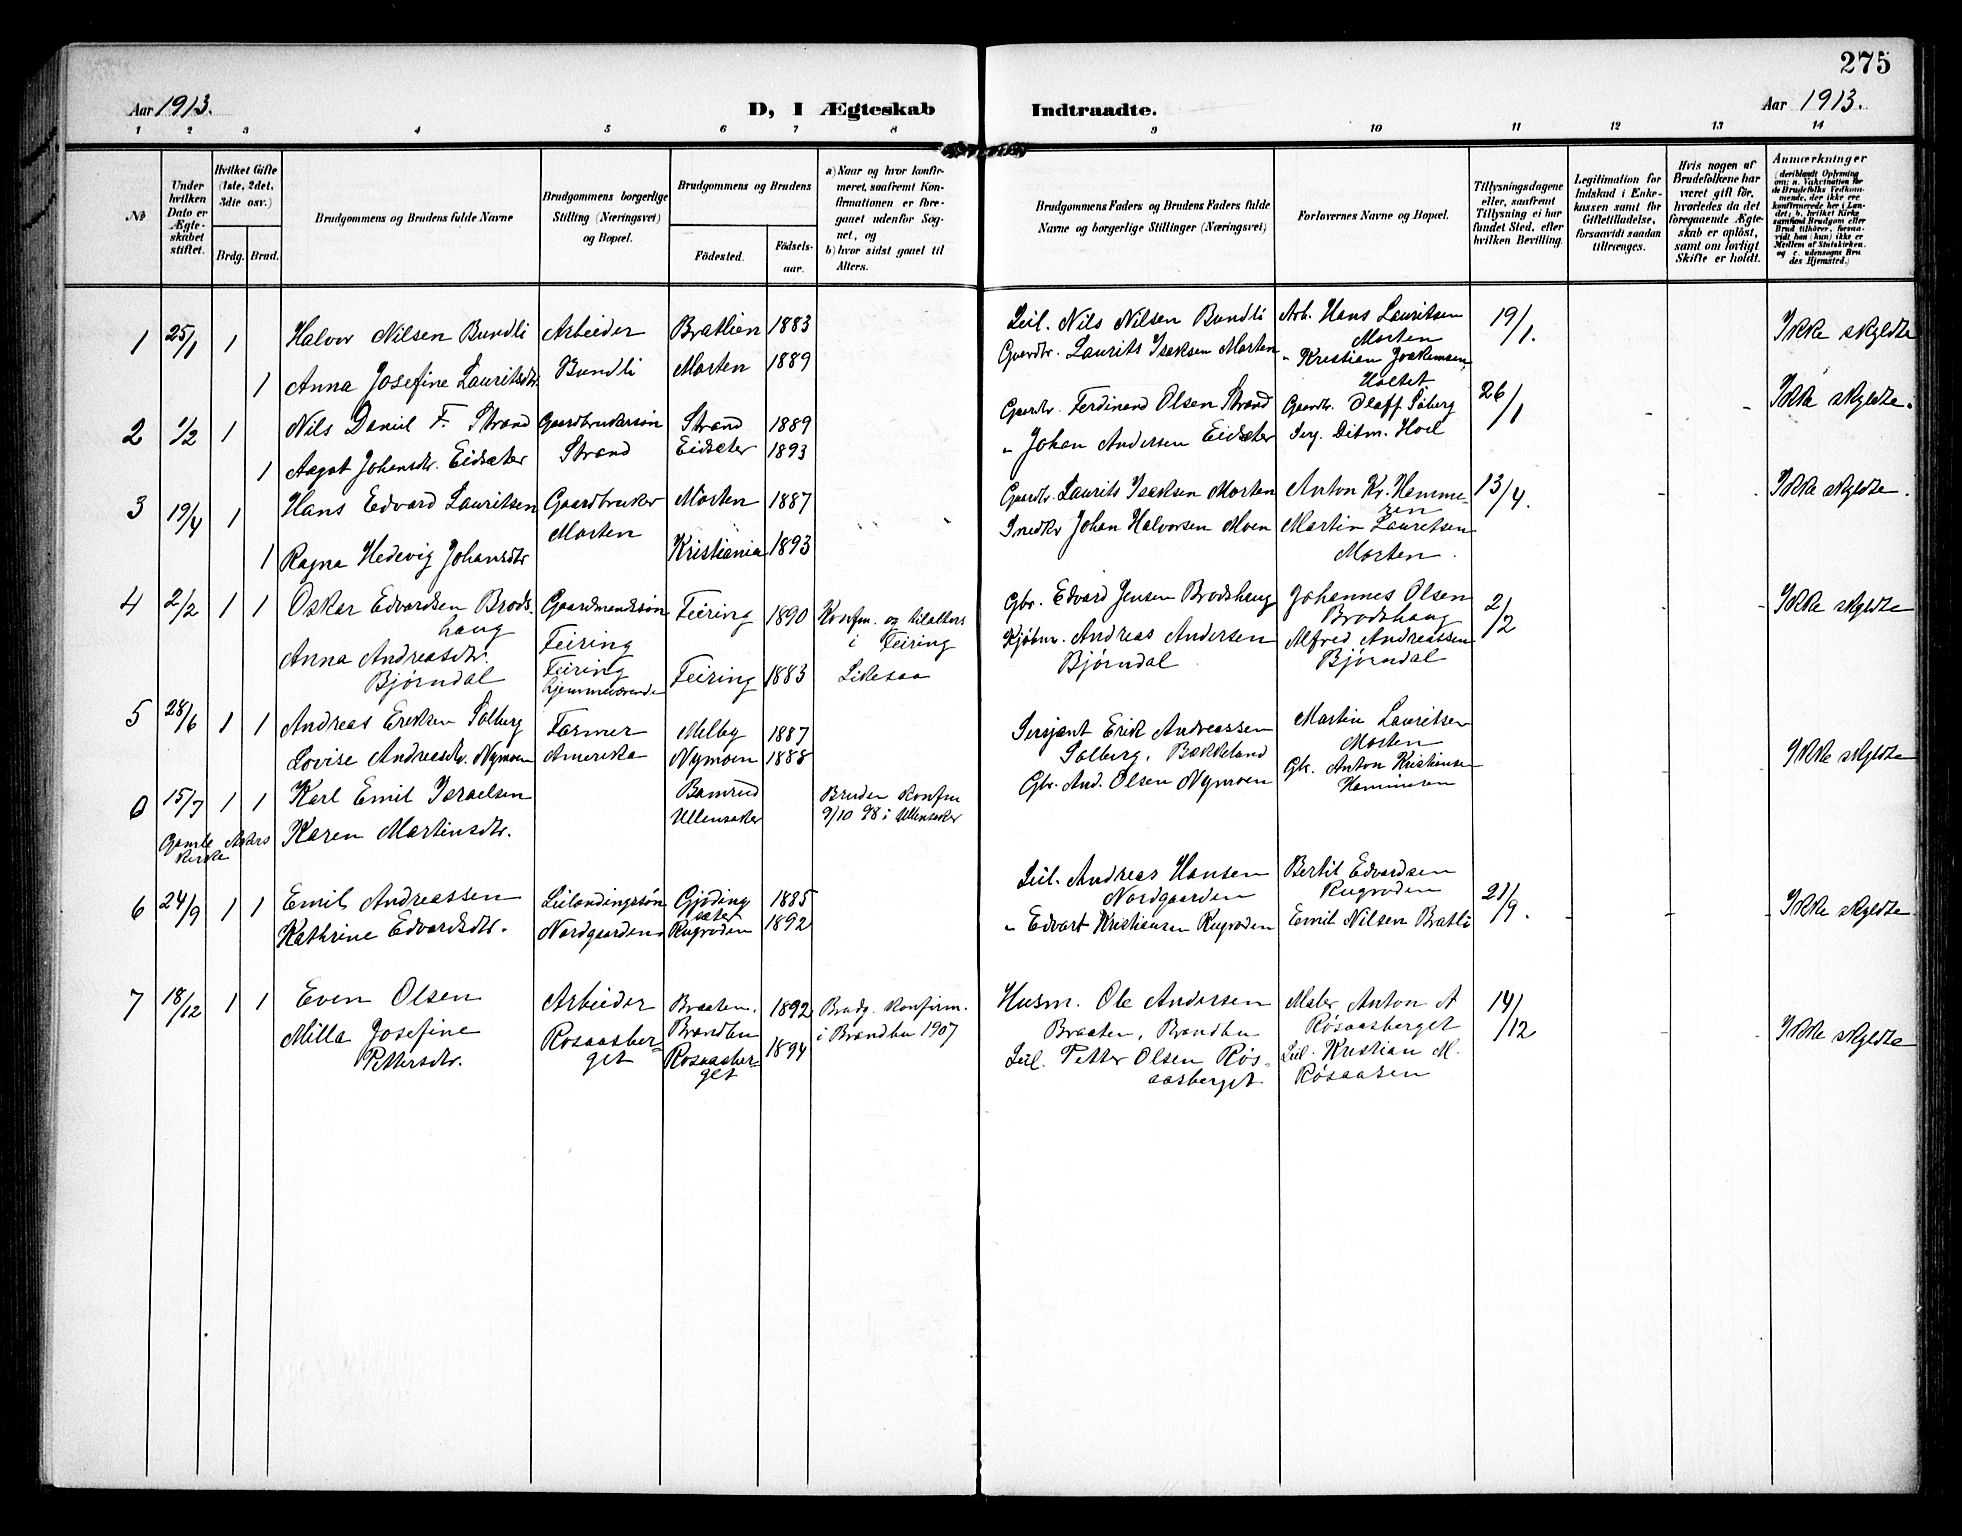 275
Aar 1913.
D, I Ægteskab Indtraadte.
Aar 1913.
1 2 3 4 5 6 7 8 9 10 11 12 13 14
№
Under hvilken Dato er Ægteskabet stiftet.
Hvilket Gifte (1ste, 2det, 3die osv.)
Brdg. Brud.
Brudgommens og Brudens fulde Navne
Brudgommens borgerlige Stilling (Næringsvei) og Bopæl.
Brudgommens og Brudens
Födested.
Födselsaar.
a) Naar og hvor konfirmeret, saafremt Konfirmationen er foregaaet udenfor Sognet, og
b) hvor sidst gaaet til Alters.
Brudgommens Faders og Brudens Faders fulde Navne og borgerlige Stillinger (Næringsvei)
Forlovernes Navne og Bopæl.
Tillysningsdagene eller, saafremt Tillysning ei har fundet Sted, efter hvilken Bevilling.
Legitimation for Indskud i Enkekassen samt for Giftetilladelse, forsaavidt saadan tiltrænges.
Hvis nogen af Brudefolkene har været gift för, hvorledes da det foregaaende Ægteskab er oplöst, samt om lovligt Skifte er holdt.
Anmærkninger (deriblandt Oplysning om: a. Vakcination for de Brudefolks Vedkommende, der ikke ere konfirmerede her i Landet; b. hvilket Kirkesamfund Brudgom eller Brud tilhörer, forsaavidt han (hun) ikke er Medlem af Statskirken, og c. udensogns Brudes Hjemsted.)
1 25/1 1 Halvor Nilsen Bundli Arbeider Bratlien 1883 Leil. Nils Nilsen Bundli Arb. Hans Lauritsen Morten 19/1. Ikke skyldte
1 Anna Josefine Lauritsdtr. Bundli Morten 1889 Gaardbr. Laurits Isaksen Morten " Kristian Joakimsen, Holtet
2 1/2 1 Nils Daniel F. Strand Gaardbrukersön Strand 1889 Gaardbr. Ferdinand Olsen Strand Gaardbr. Olaff Söberg 26/1 - - Ikke skyldte.
1 Aagot Johansdtr. Eidsæter Strand Eidsæter 1893 " Johan Andersen Eidsæter Serg. Ditm. Hoel
3 19/4 1 Hans Edvard Lauritsen Gaardbruker Morten 1887 Gaardbr. Laurits Isaksen Morten Anton Kr. Hammeren 13/4. - - Ikke skyldte.
1 Ragna Hedevig Johansdtr Morten Kristiania 1893 Snedkr Johan Halvorsen Moen Martin Lauritsen Morten.
4 2/2 1 1 Oskar Edvardsen Brodshaug Gaardmandssön Feiring Feiring 1890 Konfm. og tilalters i Feiring Gbr. Edvard Jensen Brodshaug Johannes Olsen Brodshaug 2/2 - - Ikke skyldte
Anna Andreasdtr. Bjørndal Feiring hjemmeværende Feiring 1883 Likesaa Kjöbm. Andreas Andersen Bjørndal Alfred Andreassen Bjørndal
5 28/6 1 1 Andreas Eriksen Solberg Farmer Melby 1887 Sersjant Erik Andreassen Solberg, Bækkeland Martin Lauritsen Morten
Lovise Andreasdtr. Nymoen Amerika Nymoen 1888 Gbr. And. Olsen Nymoen Gbr. Anton Kristiansen Hammeren Ikke skyldte
6 15/7 1 1 Karl Emil Israelsen Bamrud Bruden konfm 9/10 98 i Ullensaker
Gamle Akers Kirke Karen Martinsdtr. Ullensaker
6 24/9 1 1 Emil Andreassen Leilændingssön Gjödingsæter 1885 Leil. Andreas Hansen Nordgaarden Bertil Edvardsen Rugroden 21/9. - - - Ikke skyldte
Kathrine Edvardsdtr. Nordgaarden Rugroden 1892 " Edvart Kristiansen Rugroden Emil Nilsen Bratli
7 18/12 1 1 Even Olsen Arbeider Braaten, Brandbu 1892 Brudg. konfirm. i Brandbu 1907 Husm. Ole Andersen Braaten, Brandbu Maler Anton A Røsaasberget 14/12 - - Ikke skyldte
Milla Josefine Pettersdtr. Røsaasberget Røsaasberget 1894 Leil. Petter Olsen Røsaasberget Leil. Kristian M. Røsaasen